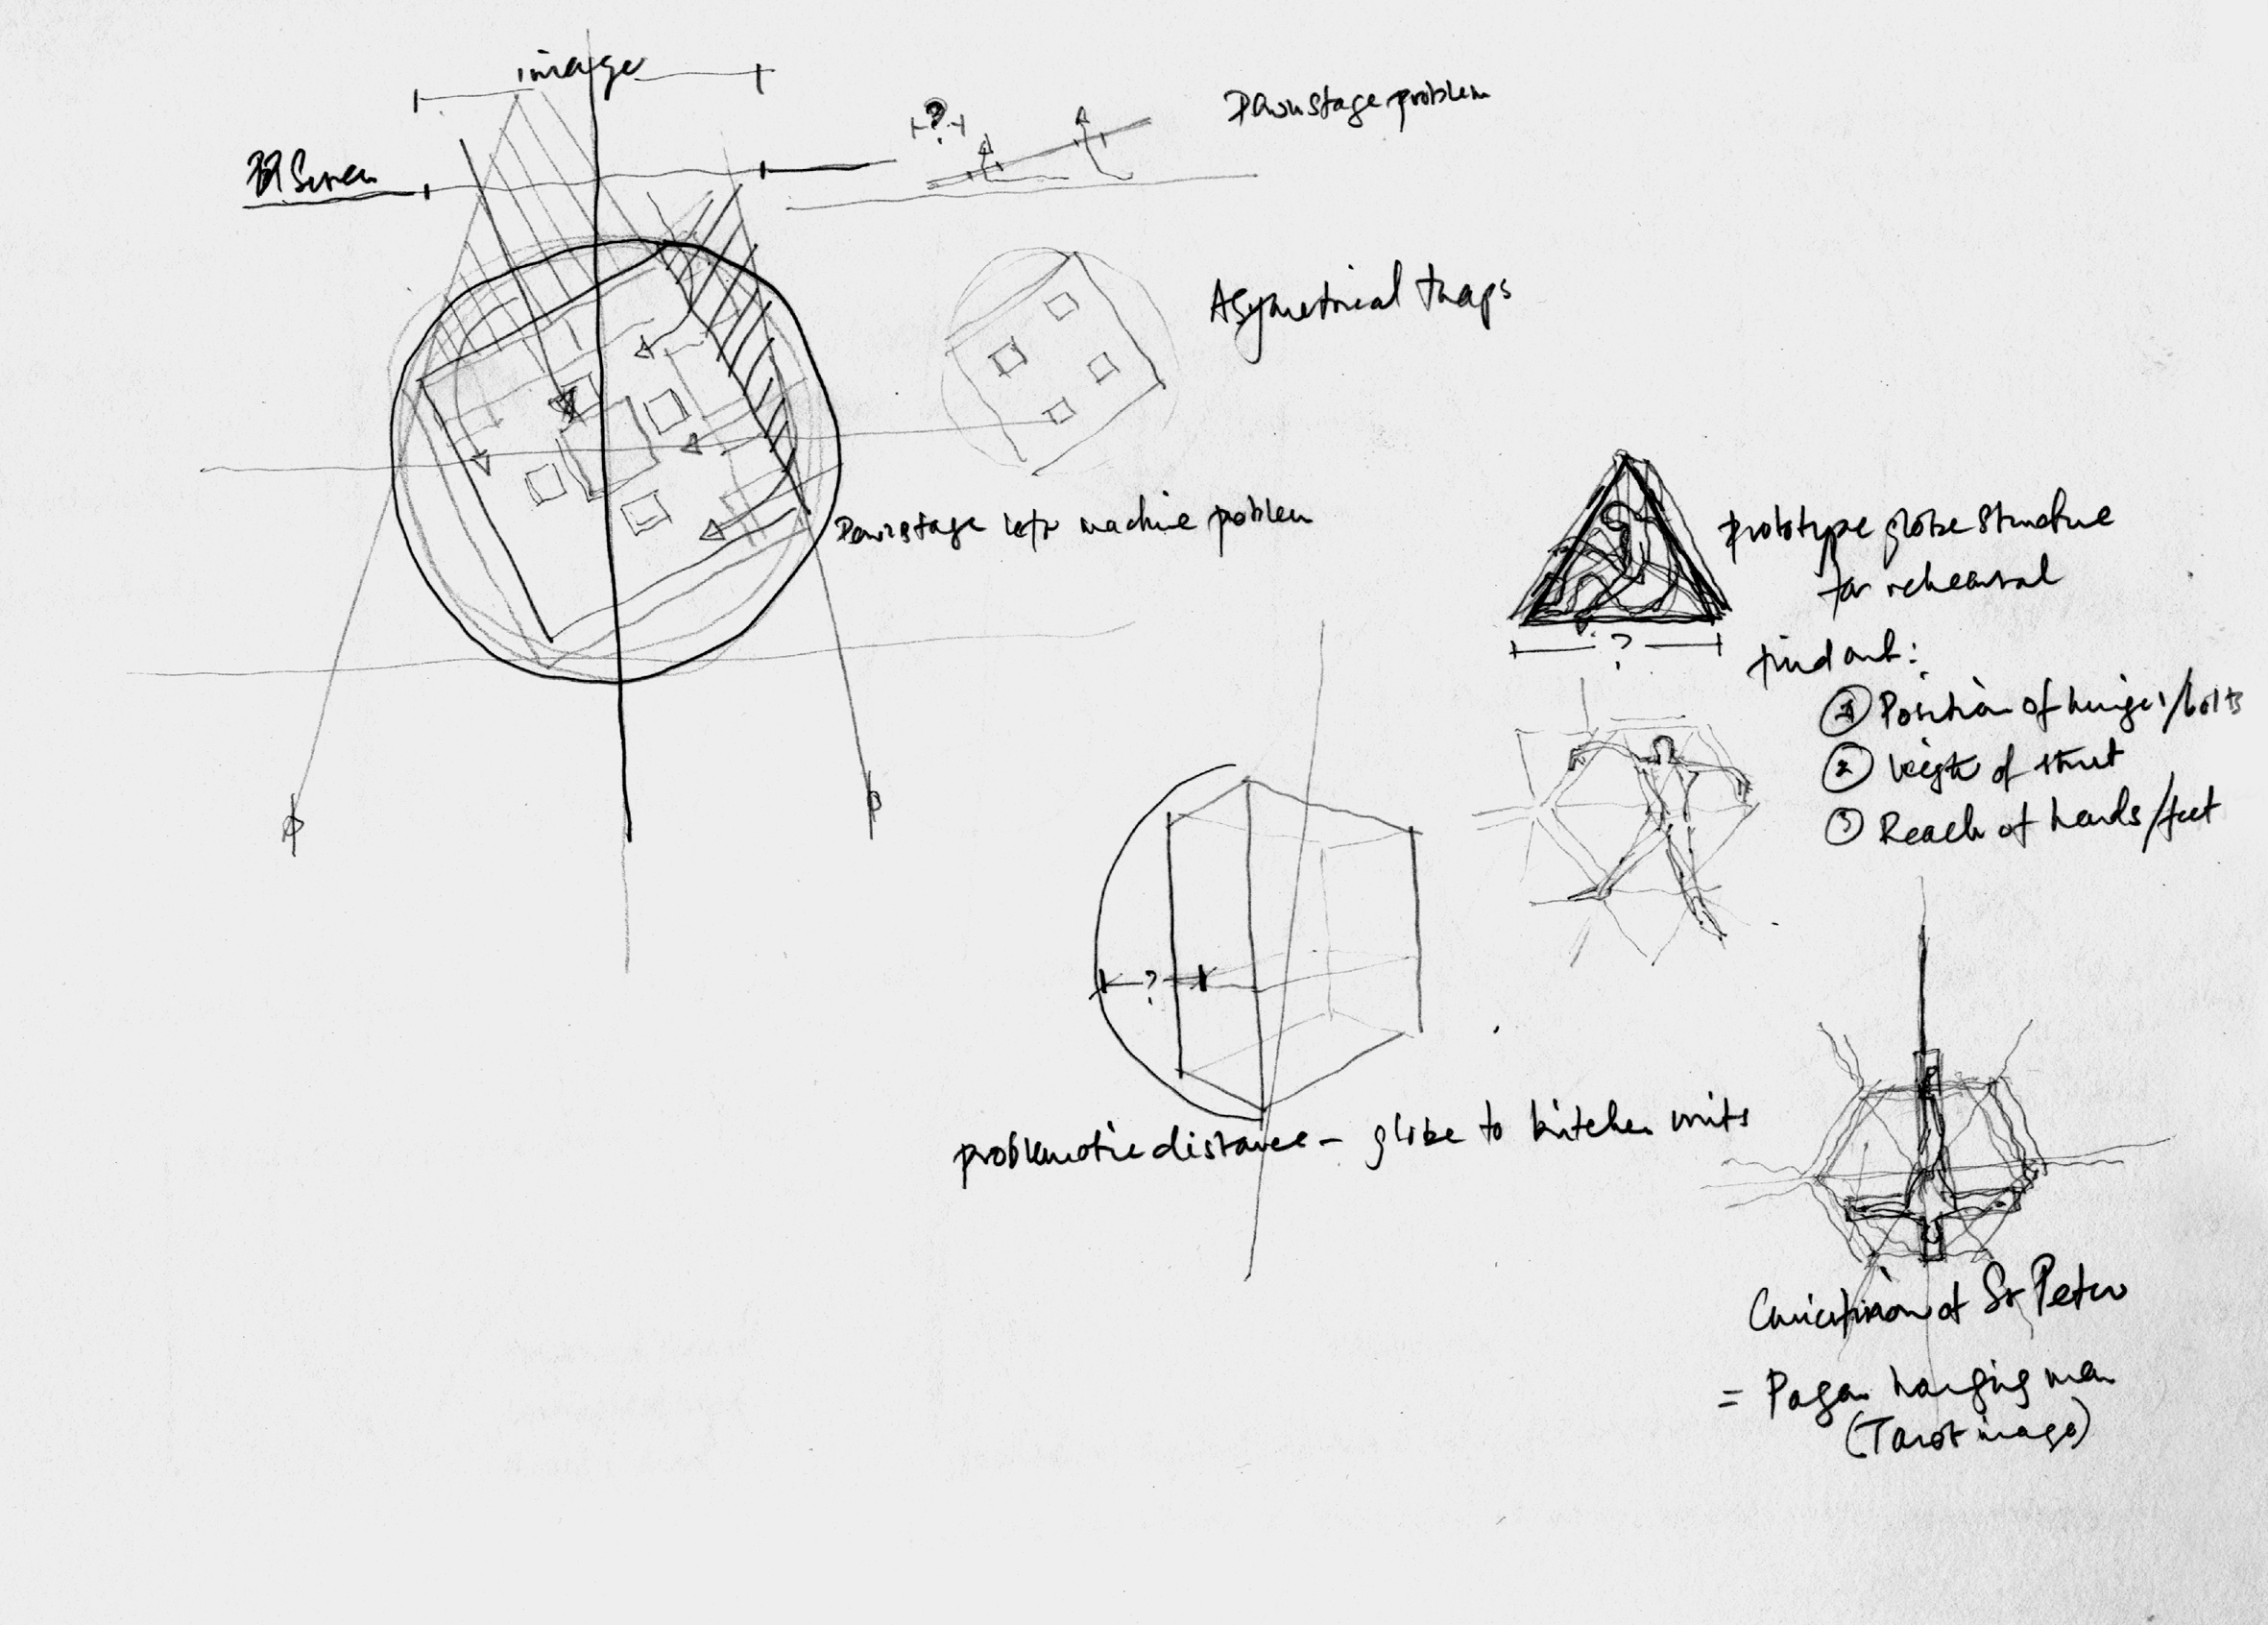 image
Screen
?
Downstage problem
Asymetrical traps
Downstage left machine poblem
prototype globe structure
for rehearsal
?
find out:
① Position of hinges/bolts
② of strut
③ Reach of hands/feet
?
problematic distance - globe to kitchen units
Crucifixion of St Peter
= Pagan hanging man
(Tarot image)